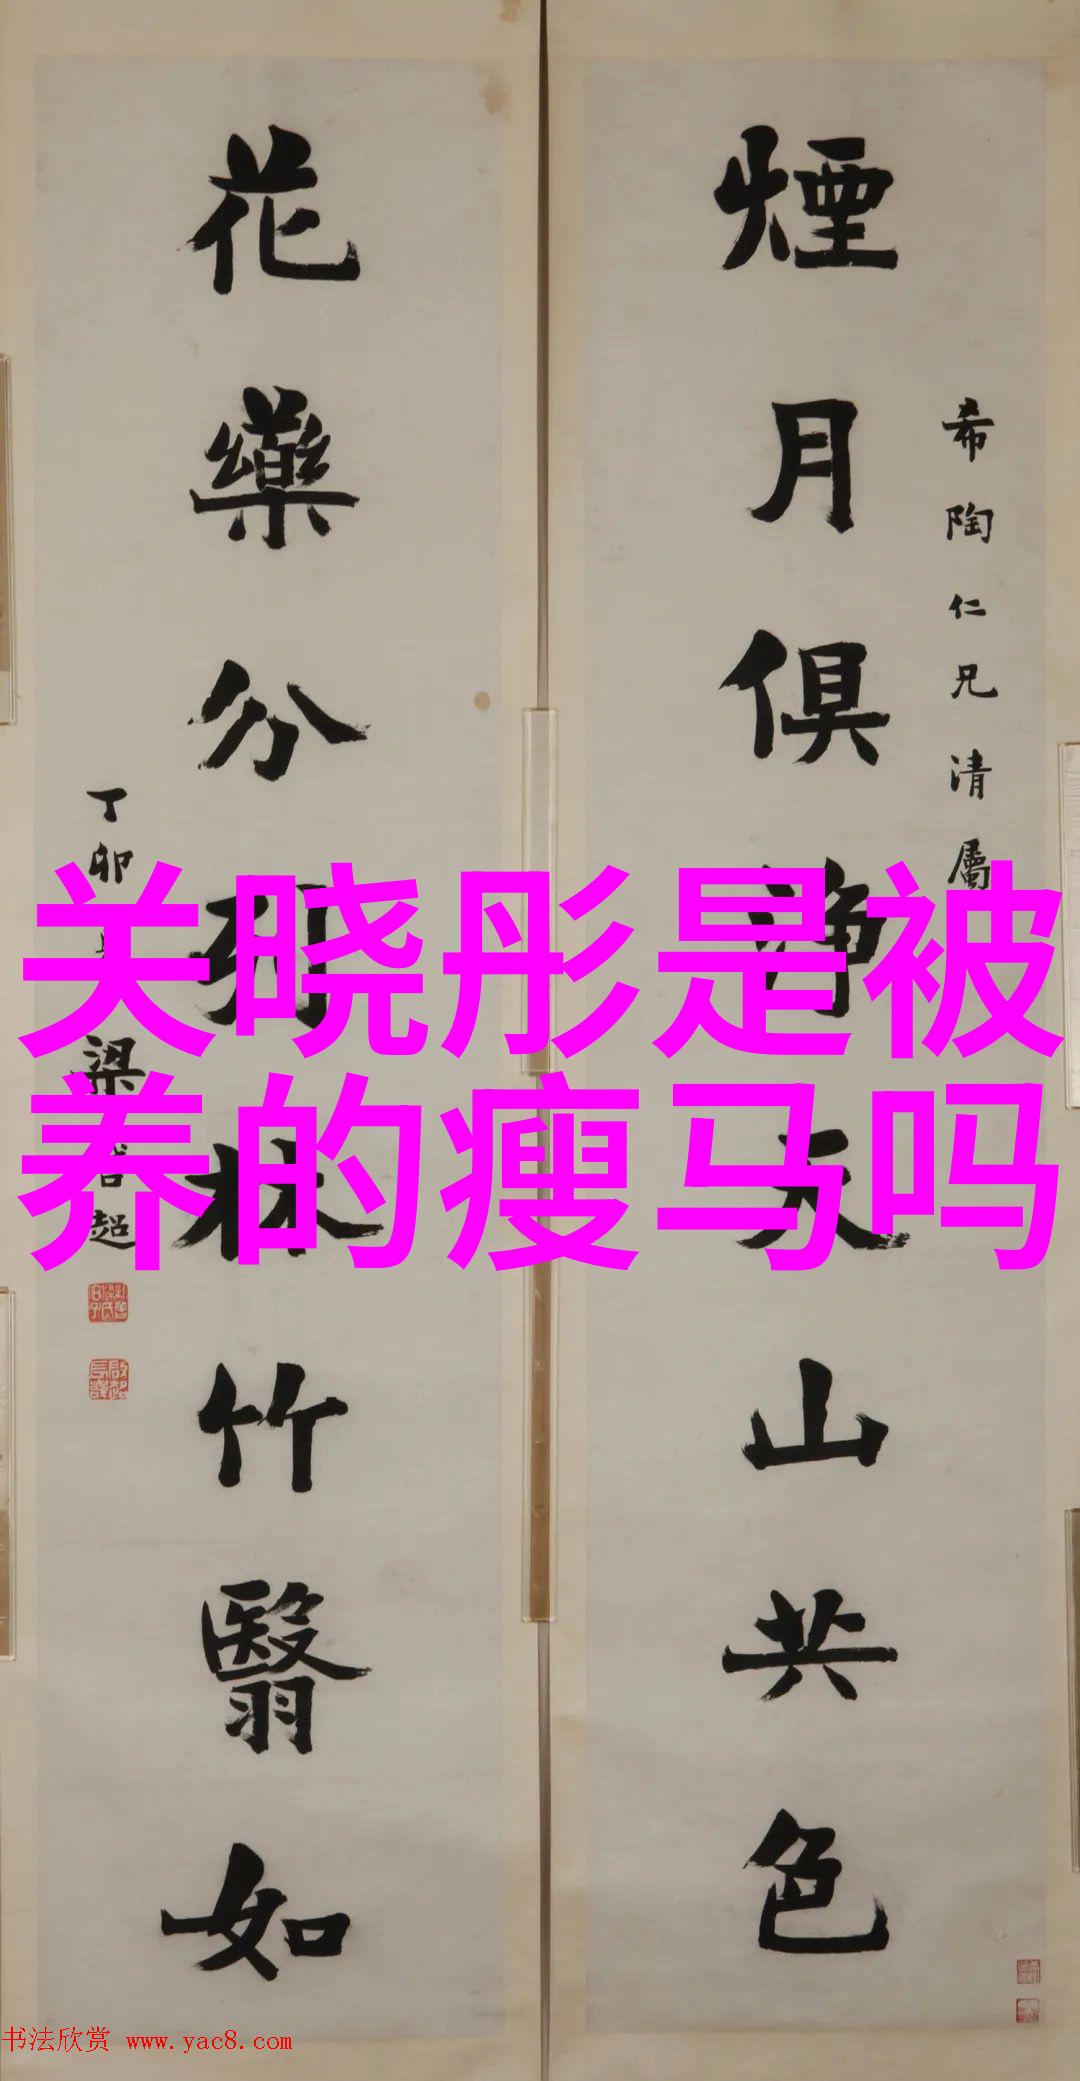 煙月俱淨天山共色
希陶仁兄清屬
花藥分列林竹翳如
丁卯
梁啟超
关晓彤是被
养的瘦马吗
书法欣赏 www.yac8.com